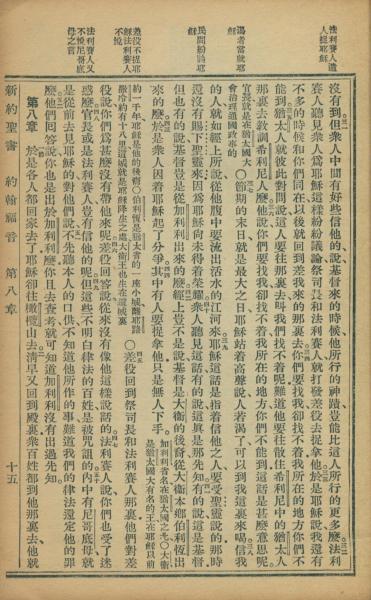 法利賽人遣
人捉耶穌
渴者當就耶
穌
民間紛論耶
穌
差役不捉耶
穌法利賽人
不悅
法利賽人又
不悅尼哥底
母之言
沒有到但衆人中間有好些信他的說基督來的時候他所行的神蹟豈能比這人所行的更多麼法利
賽人聽見衆人爲耶穌這樣紛紛議論祭司長和法利賽人就打發差役去捉拿他於是耶穌說我還有
不多的時候和你們同在以後就回到差我來的那裏去你們要找我卻找不着我所在的地方你們不
能到猶太人就彼此對問說這人要往那裏去叫我們找不着呢難道他要往散住希利尼中的猶太人
那裏去教訓希利尼人麼他說你們要找我卻找不着我所在的地方你們不能到這話是甚麼意思呢
官長就是在猶太大
會治理通國政事的
○節期的末日就是最大之日耶穌站着高聲說人若渴了可以到我這裏來喝信我
的人就如經上所說從他腹中要流出活水的江河來耶穌這話是指着信他之人要受聖靈說的那時
還沒有賜下聖靈來因爲耶穌尚未得着榮耀衆人聽見這話有的說這眞是那先知有的說這是基督
但也有的說基督豈是從加利利出來的麼經上豈不是說基督是大衛的後裔從大衛本鄉伯利恆出
來的麼於是衆人因着耶穌起了分爭其中有人要捉拿他只是無人下手
加利利省名在猶太國之北○大衛
是猶太國大有名的王在耶穌以前
約一千年耶穌是他的後裔○伯利恆是猶太省的一座小城離耶路
撒冷約有十八里這城就是耶穌降生之處大衛王也生在這城裏
○差役回到祭司長和法利賽人那裏他們對差
役說你們爲甚麼沒有帶他來呢差役回答說從來沒有像他這樣說話的法利賽人說你們也受了迷
惑麼官長或是法利賽人豈有信他的呢但這些不明白律法的百姓是被咒詛的內中有尼哥底母就
是從前去見耶穌的對他們說不先聽本人的口供不知道他所作的事難道我們的律法還定他的罪
麼他們回答說你也是出於加利利麼你且去查考就可知道加利利沒有出過先知
第八章　於是各人都回家去了耶穌卻往橄欖山去淸早又回到殿裏衆百姓都到他那裏去他就
新約聖書　約翰福音　第八章　十五